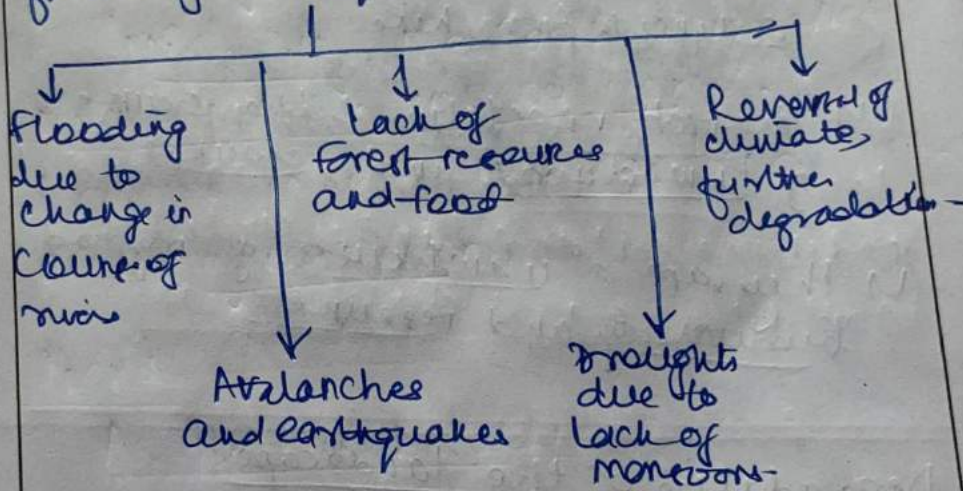 Flooding
due to
change in
course of
river
Avalanches
and earthquakes
Lack of
forest resources
and food
Droughts
due to
lack of
monsoons
Reversal of
climate,
further
degradation